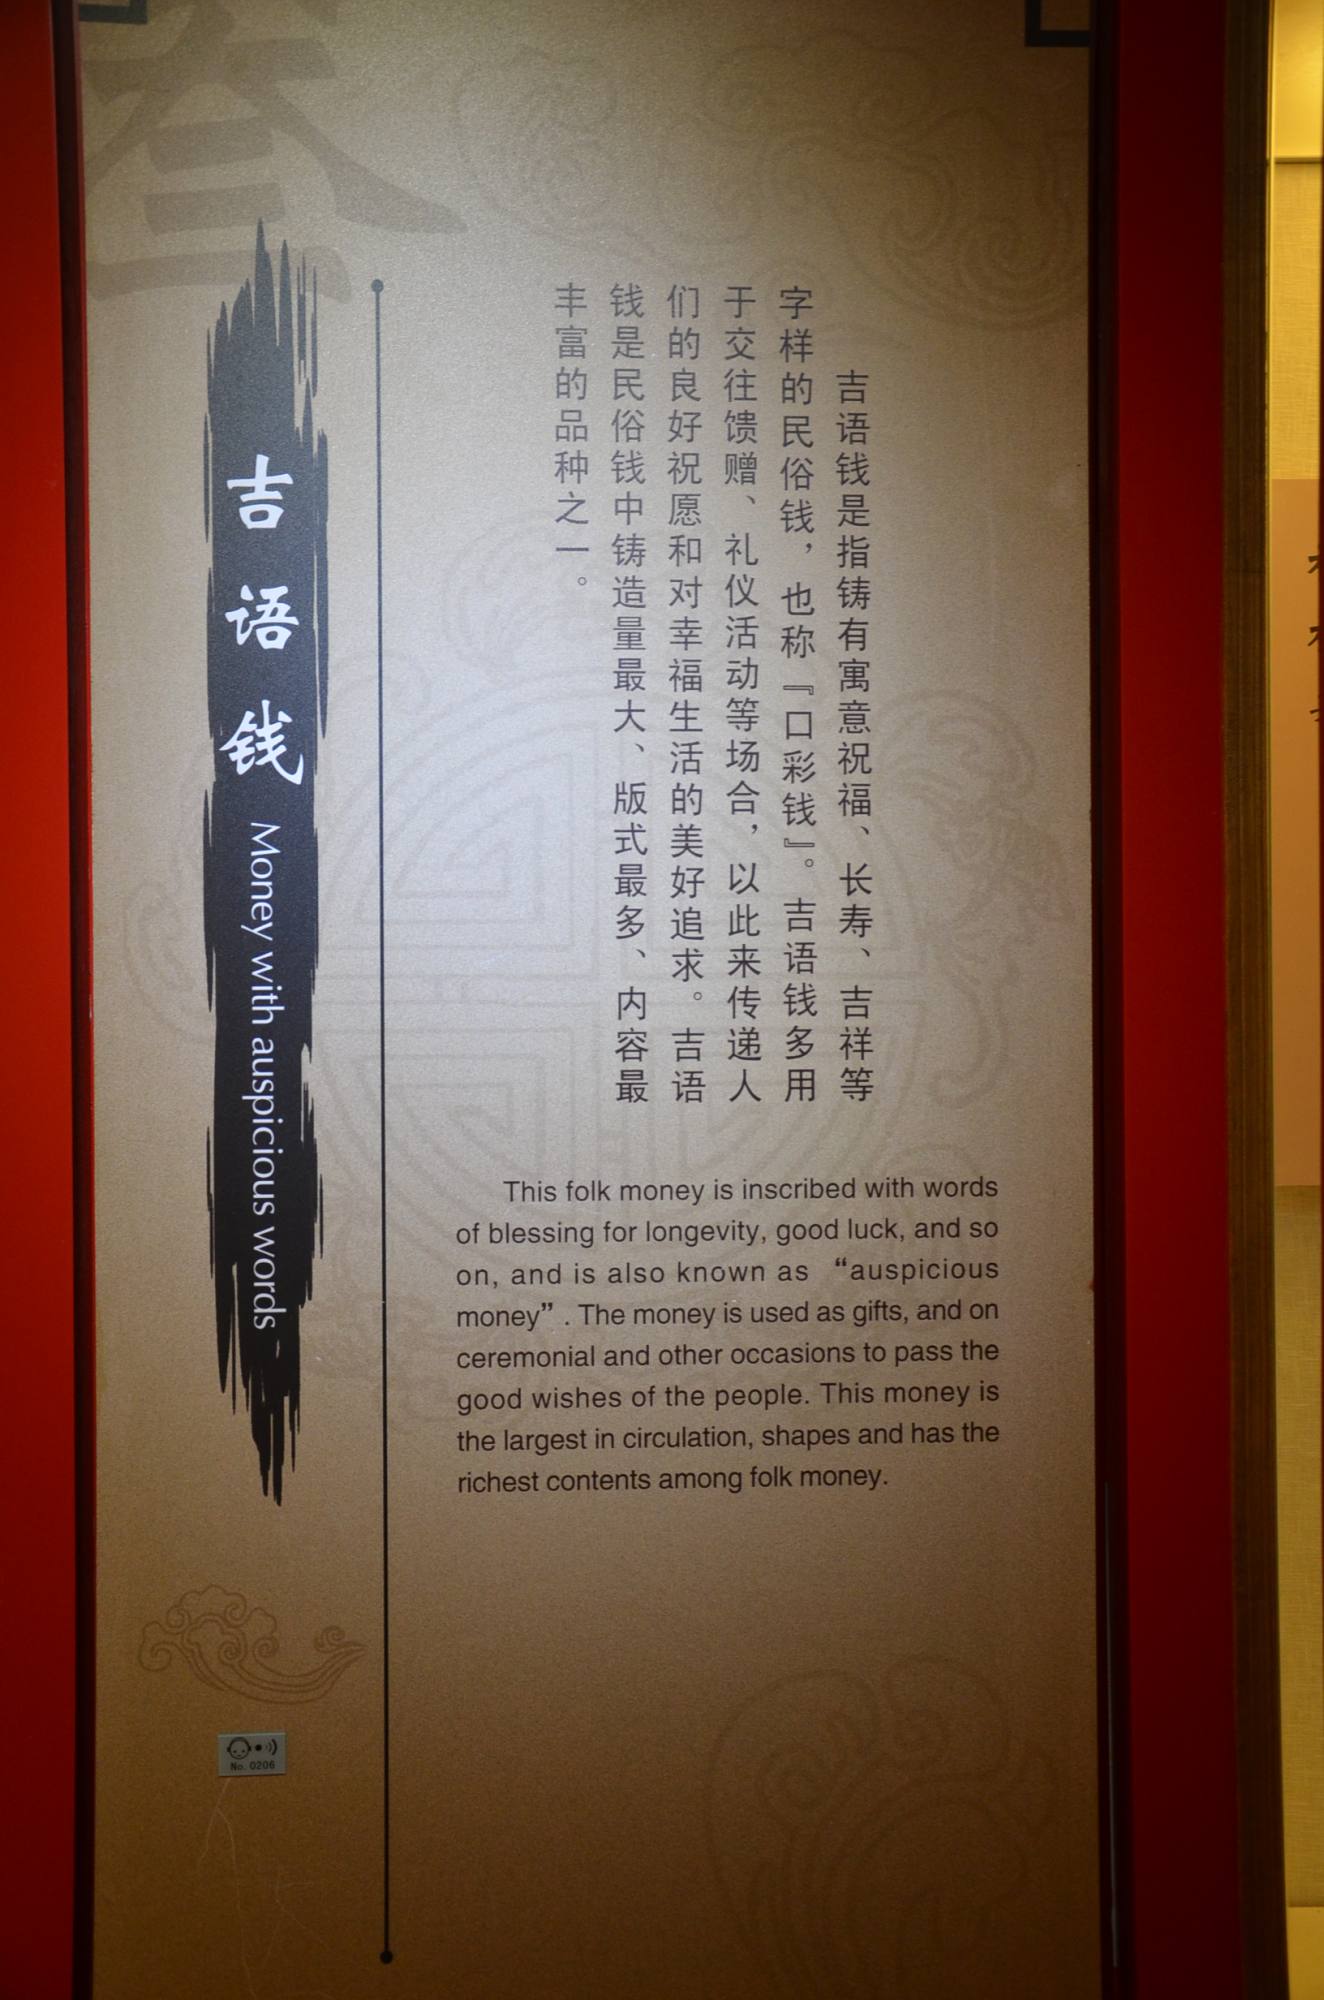 叁
吉语钱 Money with auspicious words
吉语钱是指铸有寓意祝福、长寿、吉祥等
字样的民俗钱，也称『口彩钱』。吉语钱多用
于交往馈赠、礼仪活动等场合，以此来传递人
们的良好祝愿和对幸福生活的美好追求。吉语
钱是民俗钱中铸造量最大、版式最多、内容最
丰富的品种之一。
This folk money is inscribed with words
of blessing for longevity, good luck, and so
on, and is also known as “auspicious
money” . The money is used as gifts, and on
ceremonial and other occasions to pass the
good wishes of the people. This money is
the largest in circulation, shapes and has the
richest contents among folk money.
No. 0206